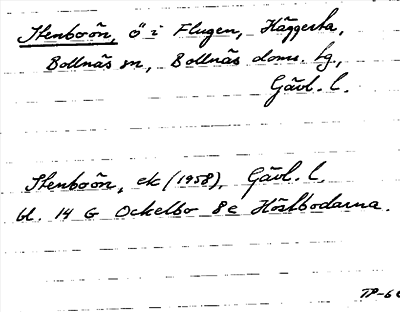 Stenboön, ö i Flugen, Häggesta,
Bollnäs sn, Bollnäs doms. hg,
Gävl. l.
Stenboön, ek (1958), Gävl. l.
bl. 14 G Ockelbo 8e Höstbodarna.
TP-6